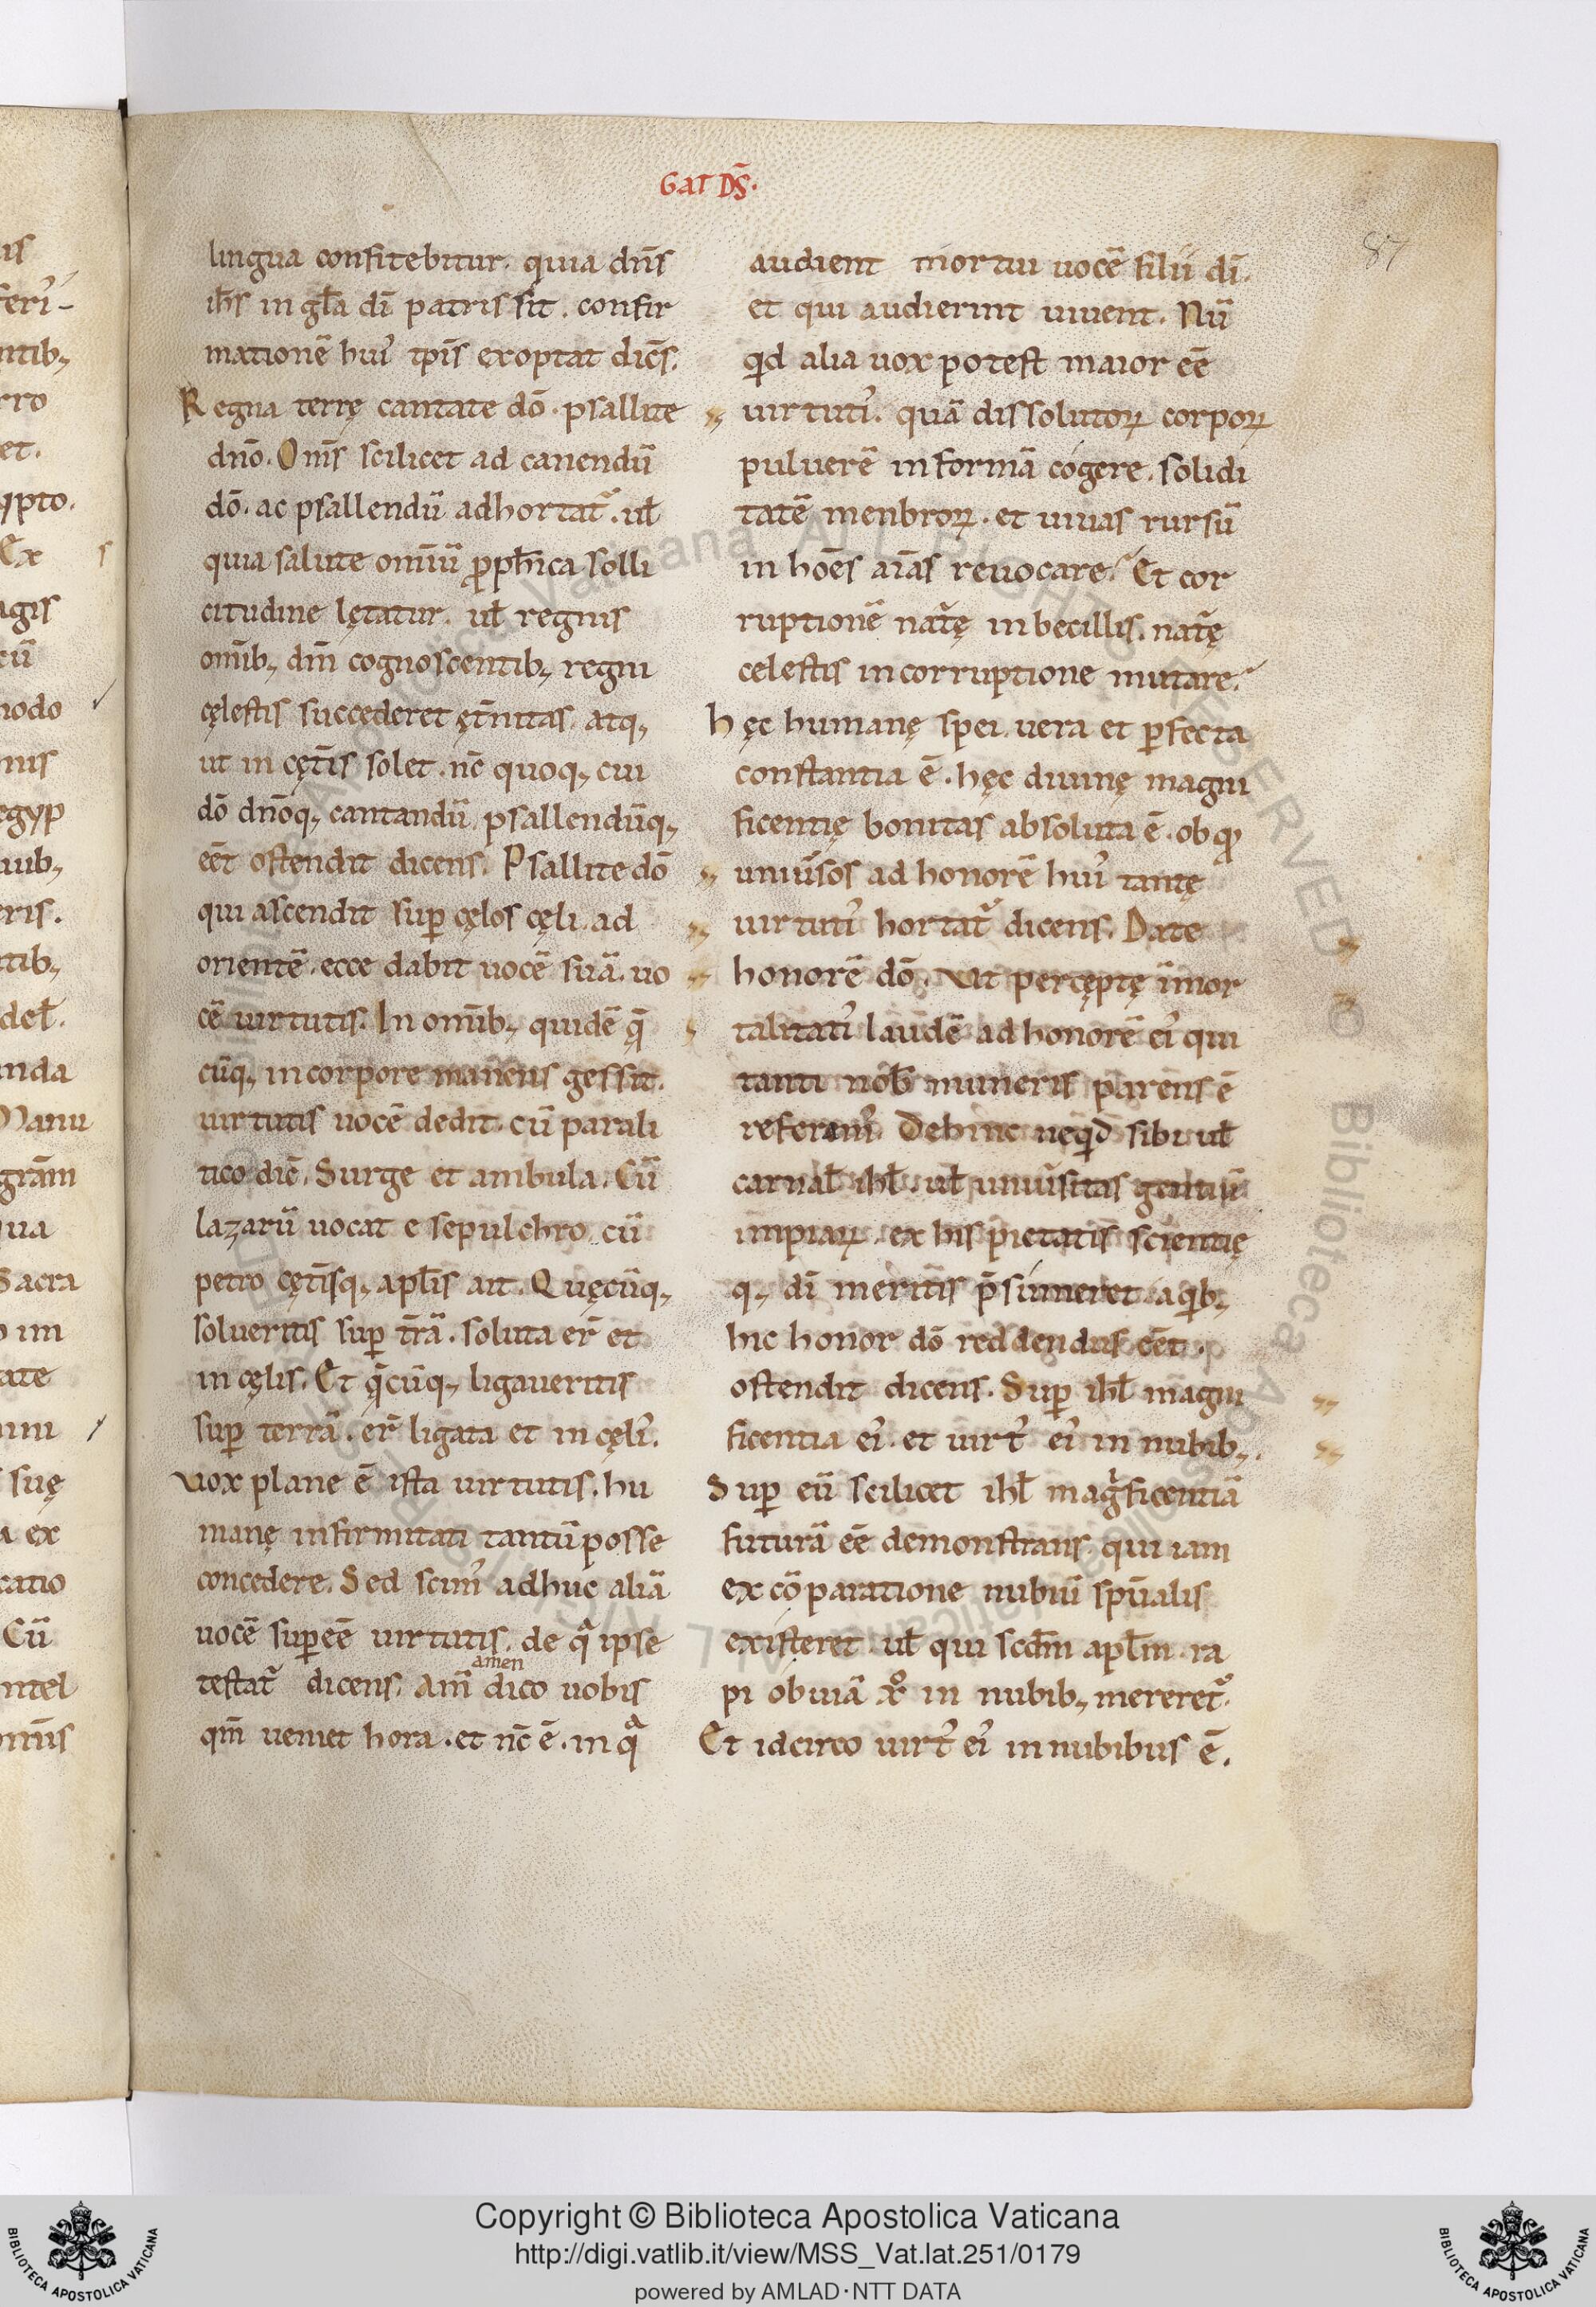 GAT DS̄.
87
lingua confitebitur. quia dn̄s
ih̄s in gl̄a dī patris sit. confir
mationē hui᾽ tp̄is exoptat dicēs.
Regna terrę cantate dō. psallite
dn̄o. Om̄s scilicet ad canendū
dō. ac psallendū adhortat᷑. ul̄
quia salute omīū ꝓph̄ica solli
citudine lętatur. ul̄ regnis
om̄ib; dm̄ cognoscentib; regni
cęlestis succederet ęt̄nitas. atq;
ut in cęt̄is solet. nc̄ quoq; cui
dō dn̄oq; cantandū psallendūq;
eēt ostendit dicens. Psallite dō
qui ascendit suꝑ cęlos cęli. ad
orientē. ecce dabit uocē suā. uo
cē uirtutis. In om̄ib; quidē q̄
cūq; in corpore manens gessit.
uirtutis uocē dedit. cū parali
tico diē. Surge et ambula. Cū
lazarū uocat e sepulchro. cū
petro cęt̄isq; apl̄is ait. Quęcūq;
solueritis suꝑ t̄rā. soluta er̄ et
in cęlis. Et q̄cūq; ligaueritis
suꝑ terrā. er̄ ligata et in cęli᾽.
Vox plane ē ista uirtutis. hu
manę infirmitati tantū posse
concedere. Sed scim᾽ adhuc aliā
uocē suꝑeē uirtutis. de qͣ ipse
amen
testat᷑ dicens. Am̄ dico uobis
qm̄ ueniet hora. et nc̄ ē. in qͣ
audient mortui uocē filii dī.
et qui audierint uiuent. Nū
qͥd alia uox potest maior eē
uirtuti᾽. quā dissolutoꝝ corpoꝝ
puluerē in formā cogere. solidi
tatē menbroꝝ. et uiuas rursū
in hoēs aīas reuocare? Et cor
ruptionē nat᷑ę inbecillis. nat᷑ę
celestis incorruptione mutare?
hęc humanę spei uera et ꝑfecta
constantia ē. hęc diuinę magni
ficentię bonitas absoluta ē. ob qͦ
uniūsos ad honorē hui᾽ tantę
uirtuti᾽ hortat᷑ dicens. Date
honorē dō. Vt percęptę īmor
talitati᾽ laudē ad honorē ei᾽ qui
tanti nob̄ muneris parens ē
referam᾽. Dehinc neqͥd sibi ul̄
carnal̄ ihl̄. ul̄ uniūsitas gentiū
impiaꝝ. ex his pietatis scientię
q; dī meritis p̄sumeret. a qͥb;
hic honor dō reddendus eēt.
ostendit dicens. Suꝑ ihl̄ magni
ficentia ei᾽. et uirt᾽ ei᾽ in nubib;.
Suꝑ eū scilicet ihl̄ magͥficentiā
futurā eē demonstrans. qui iam
ex cōparatione nubiū sp̄ualis
existeret. ul̄ qui scd̄m apl̄m ra
pi obuiā xͦ in nubib; mereret᷑.
Et idcirco uirt᾽ ei᾽ in nubibus ē.
Copyright © Biblioteca Apostolica Vaticana
http://digi.vatlib.it/view/MSS_Vat.lat.251/0179
powered by AMLAD·NTT DATA